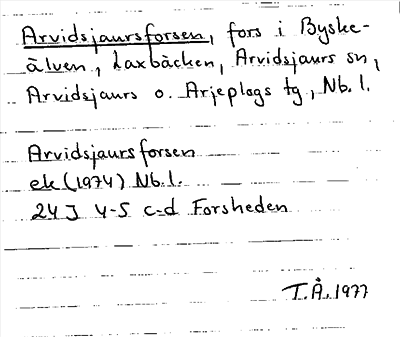 Arvidsjaursforsen, fors i Byske-
älven, Laxbäcken, Arvidsjaurs sn,
Arvidsjaurs o. Arjeplogs tg, Nb. l.
Arvidsjaursforsen
ek (1974) Nb. l.
24J 4-5 c-d Forsheden
T.Å. 1977